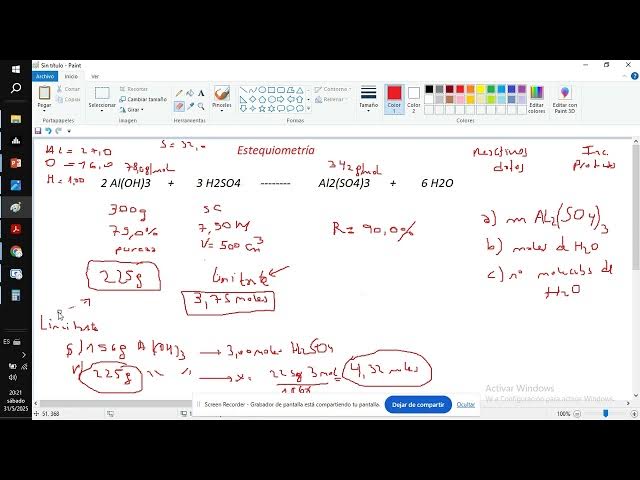 Sin título - Paint
Archivo Inicio Ver
Pegar
Seleccionar
Recortar
Cambiar tamaño
Girar
Pinceles
Contorno
Relleno
Tamaño
Color 1
Color 2
Editar colores
Editar con Paint 3D
Portapapeles
Imagen
Herramientas
Formas
Colores
AL = 27,0
S = 32,0
O = 16,0
H = 1,00
78,0g/mol
Estequiometría
342g/mol
reactivos
datos
Inc
Productos
2 Al(OH)3 + 3 H2SO4 -------- Al2(SO4)3 + 6 H2O
300g
75,0%
pureza
225g
sc
7,50 M
V = 500 cm3
Limitante
3,75 moles
R = 90,0%
a) m AL2(SO4)3
b) moles de H2O
c) nº moleculas de H2O
Limitante
S) 156g Al(OH)3 → 3,00 moles H2SO4
225g " " → x = 225g 3mol / 156g = 4,32 moles
Activar Windows
Ve a Configuración para activar Windows.
Screen Recorder - Grabador de pantalla está compartiendo tu pantalla.
Dejar de compartir
Ocultar
51, 368
100%
ES
20:21
sábado
31/5/2025